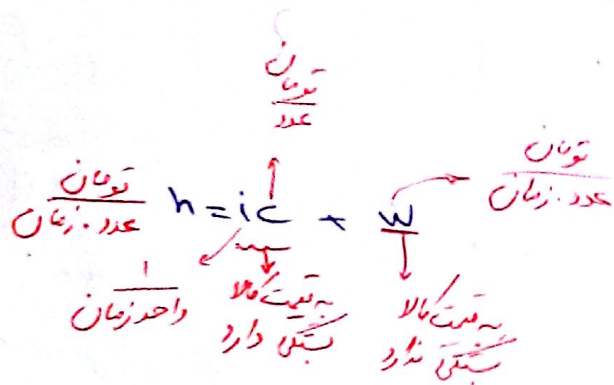 تومان
عدد
تومان
عدد.زمان
h = ic + w
تومان
عدد.زمان
۱
واحد زمان
به قیمت کالا
بستگی دارد
به قیمت کالا
بستگی ندارد